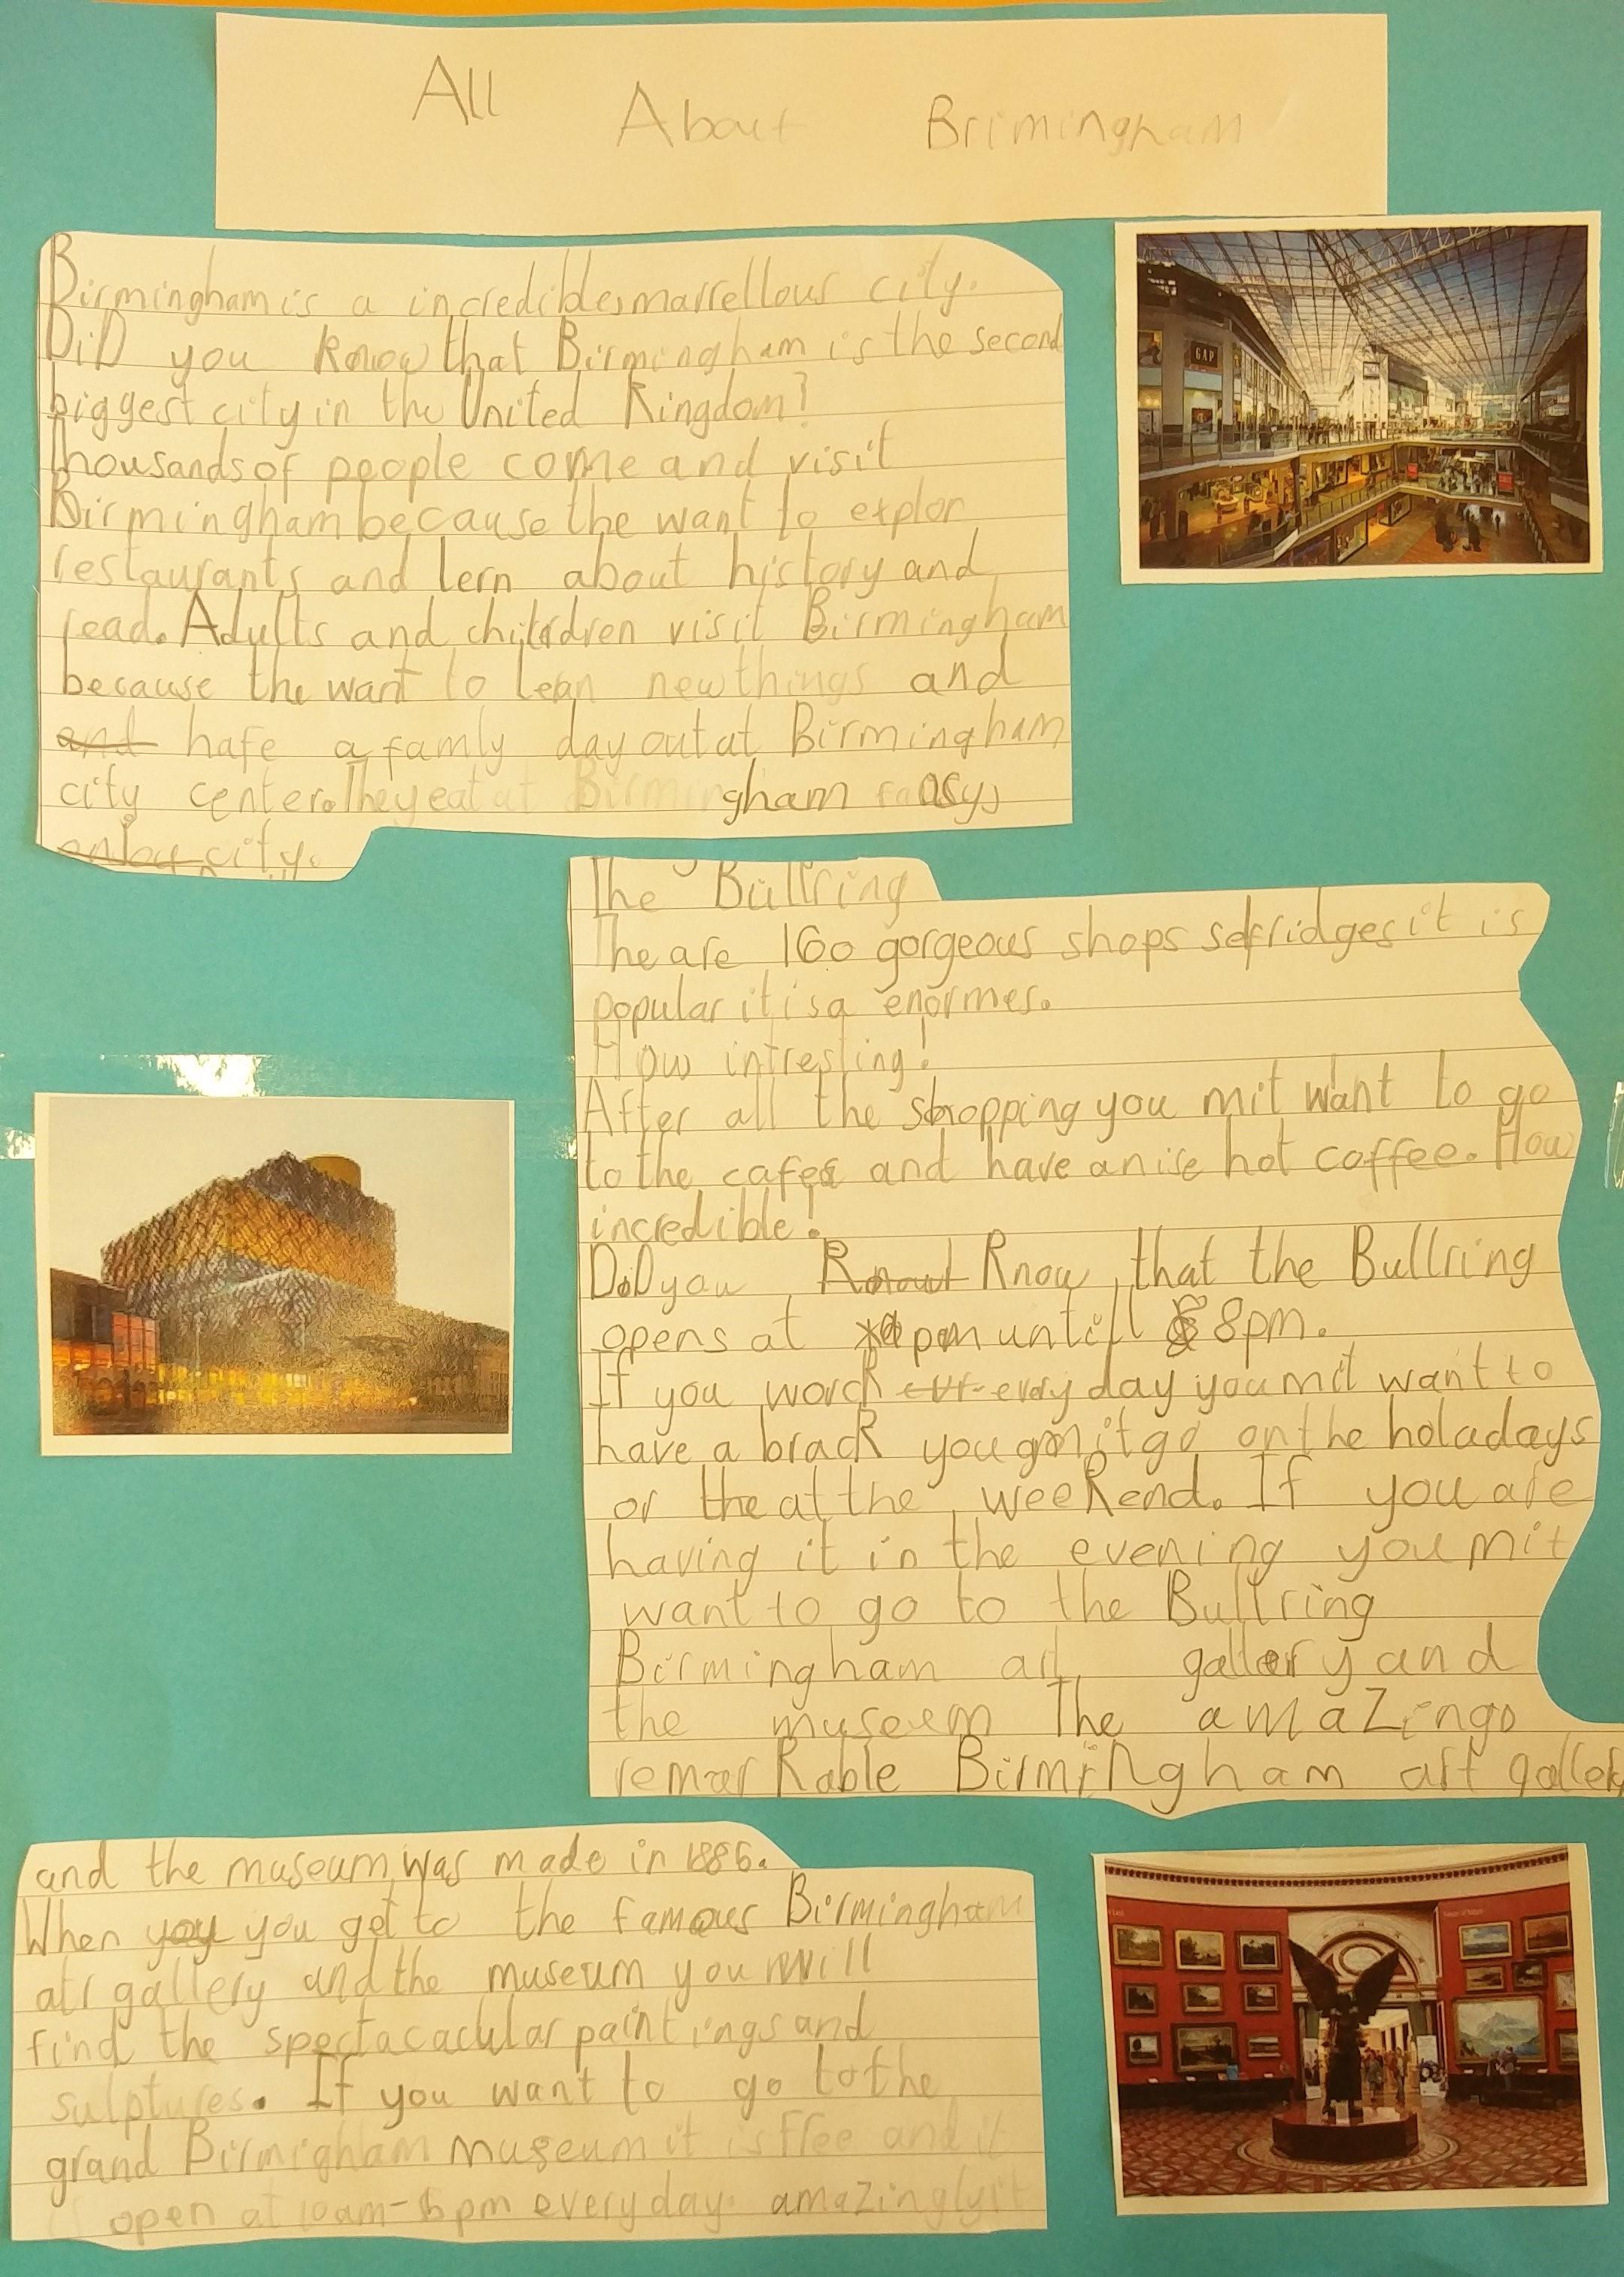 All About Brimingham
Birmingham is a incredible, marrellous city.
DiD you know that Birmingham is the second
biggest city in the United Kingdom?
Thousands of people come and visit
Birmingham because the want to explor
restaurants and lern about history and
read. Adults and children visit Birmingham
because the want to lean new things and
and hafe a famly day out at Birmingham
city center. They eat at Birmingham
city.
GAP
The Bullring
The are 160 gorgeous shops selfridges it is
popular it is a enormes.
How intresting!
After all the shopping you mit want to go
to the cafes and have a nise hot coffee. How
incredible!
DiD you Know that the Bullring
opens at pm untill 8pm.
If you worck every day you mit want to
have a brack you mit go on the holadays
or the at the weekend. If you are
having it in the evening you mit
want to go to the Bullring
Birmingham art gallery and
the museum The amazing
remarkable Birmingham art gallery
and the museum was made in 1886.
When you you get to the famous Birmingham
atr gallery and the museum you will
find the spectacacular paintings and
sulptures. If you want to go to the
grand Birmigham museum it is free and it
open at 10am-5pm every day. amazingly it